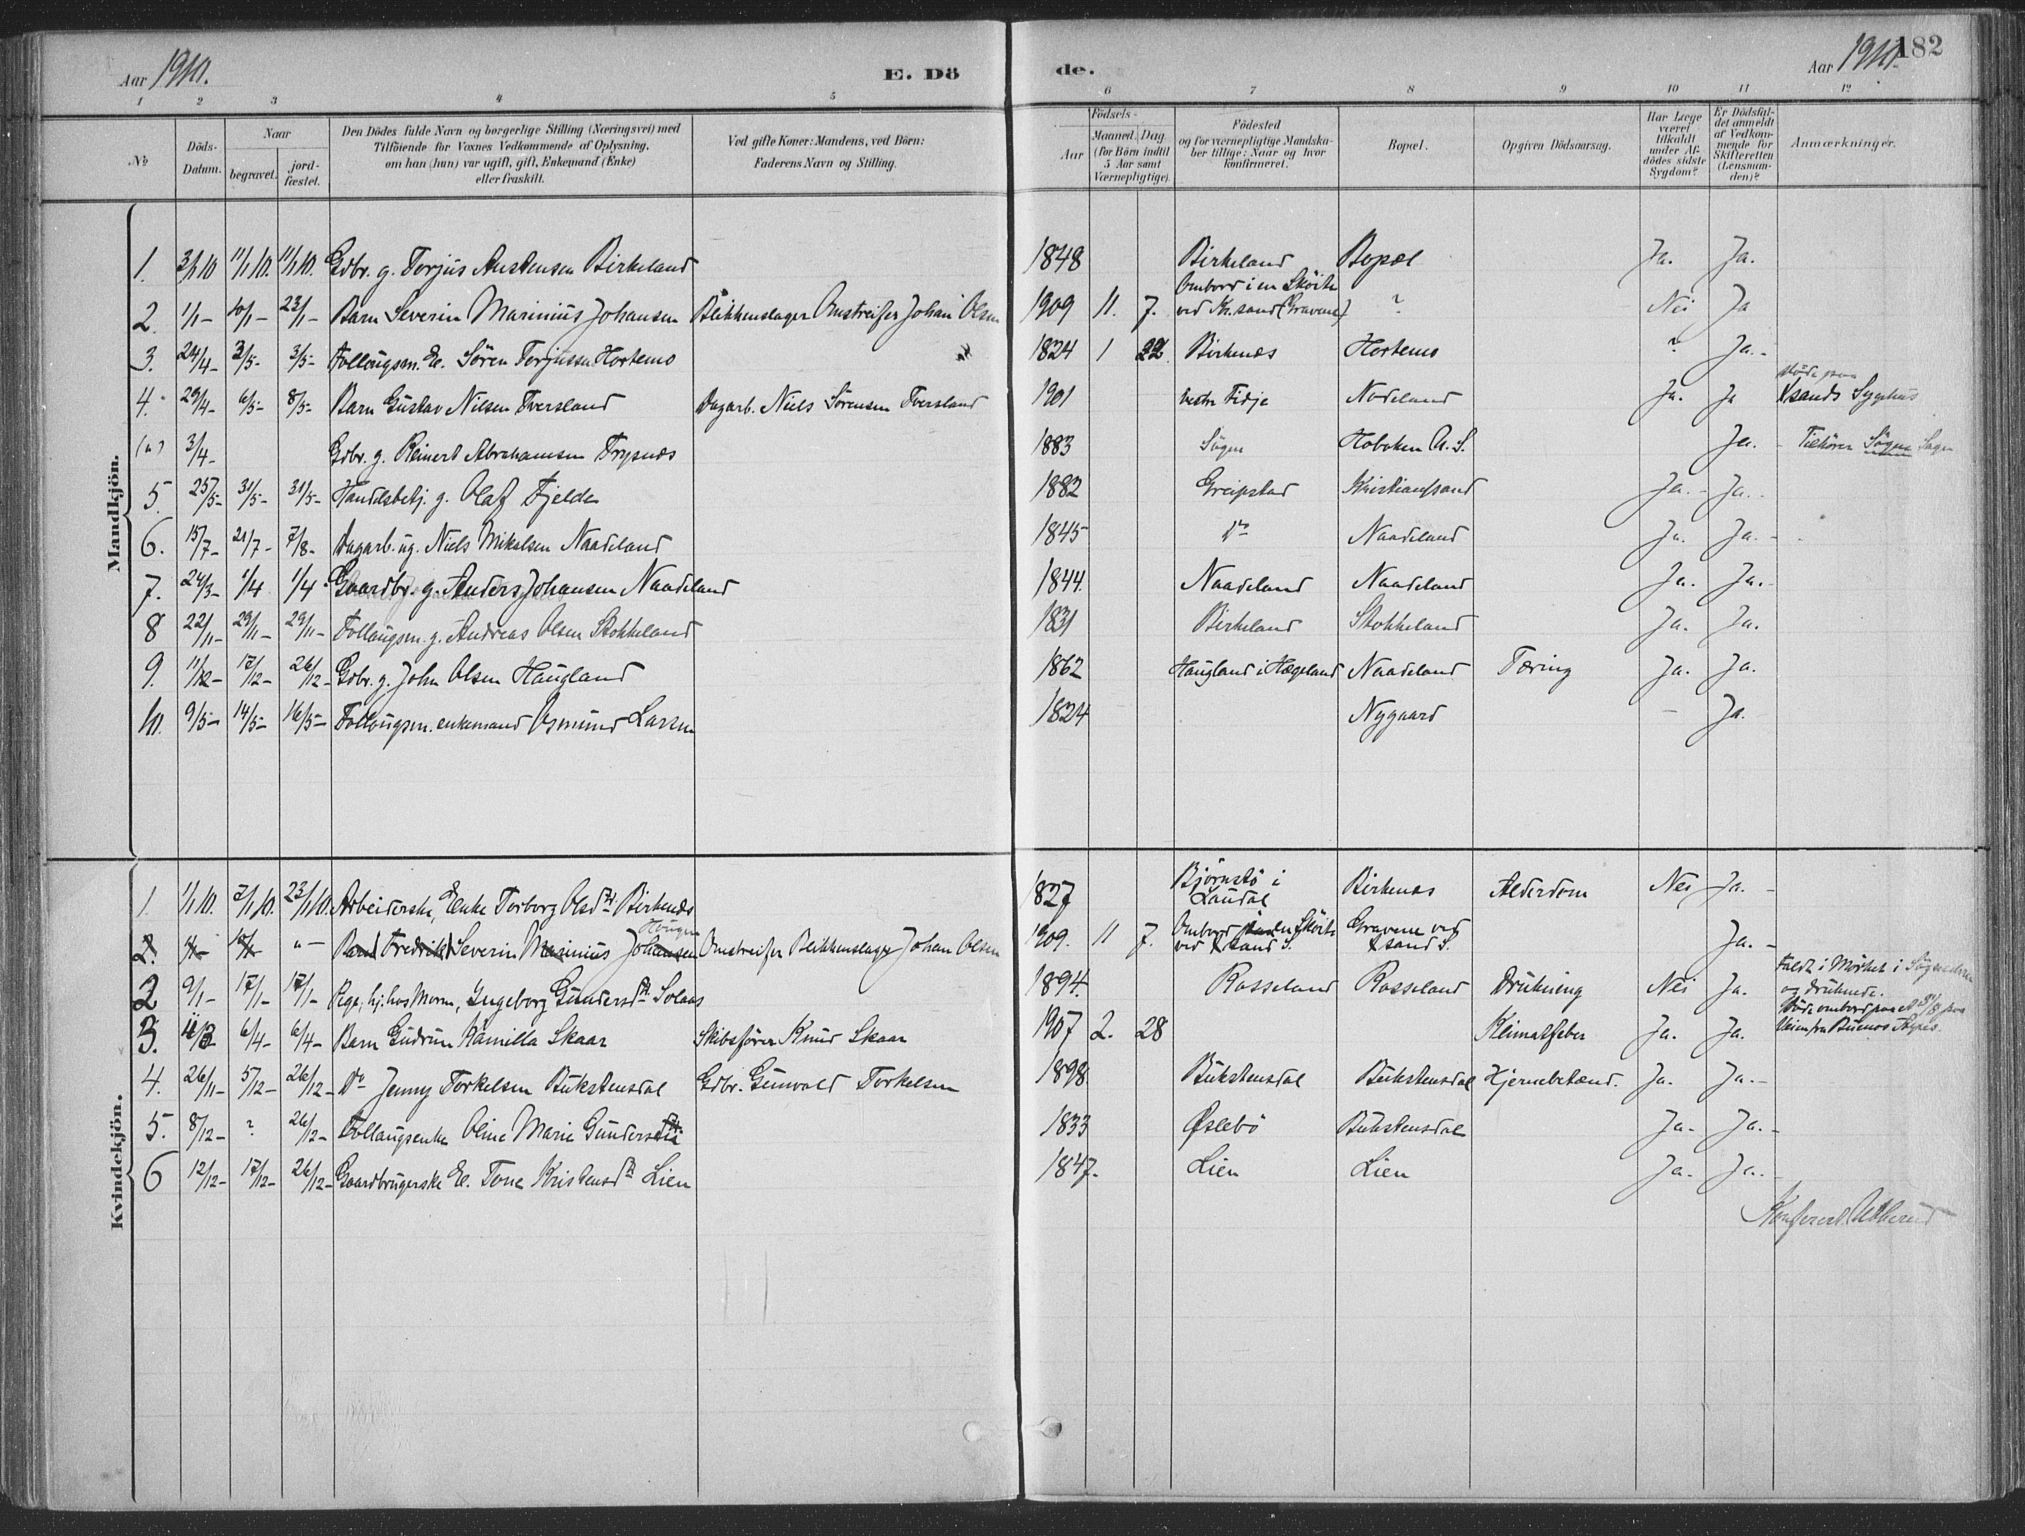 Aar 1910.
E. Dö
de.
Aar 1910.
182
1 2 3 4 5 6 7 8 9 10 11 12
No
Döds-Datum.
Naar
begravet.
jord-fæstet.
Den Dödes fulde Navn og borgerlige Stilling (Næringsvei) med
Tilföiende for Voxnes Vedkommende af Oplysning,
om han (hun) var ugift, gift, Enkemand (Enke)
eller fraskilt.
Ved gifte Koner: Mandens, ved Börn:
Faderens Navn og Stilling.
Födsels-
Aar
Maaned. Dag.
(for Börn indtil
5 Aar samt
Værnepligtige).
Födested
og for værnepligtige Mandska-
ber tillige: Naar og hvor
konfirmeret.
Bopæl.
Opgiven Dödsaarsag.
Har Læge
været
tilkaldt
under Af-
dödes sidste
Sygdom?
Er Dödsfal-
det anmeldt
af Vedkom-
mende for
Skifteretten
(Lensman-
den)?
Anmærkninger.
Mandkjön.
1. 3/1 10 11/1 10. 11/1 10. Gdbr. g. Terjus Austensen Birkeland 1848 Birkeland Bopæl Ja. Ja.
2. 1/1- 10/1- 23/1- Barn Severin Marinius Johansen Blikkenslager Omstreifer Johan Olsen 1909 11. 7. Ombord i en Skøite ved Kr.sand (Gravene) ? Nei Ja
3. 24/4- 3/5- 3/5- Follougsm. Ee. Sören Terjussen Hortemo 1824 1 22. Birkenæs Hortemo ? Ja.-
4. 29/4- 6/5- 8/5- Barn Gustav Nilsen Tversland Dagarb. Niels Sörensen Tversland 1901 Vestre Fidje Nodeland Ja. Ja Døde paa Ksands Sygehus
(a) 3/4- Gdbr. g. Reinert Abrahamsen Trysnes 1883 Sögne Hoboken A.S. Ja. - Tilhörer Sögne Sogn
5. 25/5- 31/5- 31/5- Handelsbetj. g. Olaf Fjelde 1882 Greipstad Kristianssand Ja.- Ja.
6. 15/7- 21/7- 7/8- Dagarb. ug. Niels Mikalsen Naadeland 1845- Do Naadeland Ja. Ja.-
7. 24/3- 1/4 1/4- Gaardbr. g. Anders Johansen Naadeland 1844. Naadeland Naadeland Ja. Ja.-
8 22/11- 29/11- 29/11- Follaugsm. g. Andreas Olsen Stokkeland 1831 Birkeland Stokkeland Ja. Ja.
9. 11/12- 17/12- 26/12- Gdbr. g. John Olsen Haugland 1862 Haugland i Hægeland Naadeland Tæring Ja. Ja.
10. 9/5- 14/5- 16/5- Follougsm. enkemand Osmund Larsen 1824 Nygaard - Ja.
Kvindekjön.
1. 1/1 10. 7/1 10. 23/1 10. Arbeiderske, Enke Torborg Olsdtr. Birkenæs 1827 Bjørnstö i Laudal Birkenæs Alderdom Nei Ja. -
2. 1/1- 10/1- "- Barn Fredrik Severin Marinius Johansen Omstreifer Blikkenslager Johan Olsen 1909. 11 7. Ombord i en Skøite ved Ksand S. Gravene ved Ksand S. Ja.-
2 9/1- 17/1- 17/1- Pige, hj. hos Morm, Ingeborg Gundersdtr. Solaas 1894. Rosseland Rosseland Drukning Nei Ja. Faldt i Mörket i Sögneelven og druknede.
3. 6/4- 6/4- Barn Gudrun Kamilla Skaar Skibsfører Knud Skaar 1907 2. 28 Klimatfeber Ja. Ja. Døde ombord paa Veien fra Buenos Ayres.
4. 26/11- 5/12- 26/12- Do Jenny Torkelsen Bukstensdal Gdbr. Gunvald Torkelsen 1898 Bukstensdal Bukstensdal Hjernebetænd. Ja. Ja.-
5. 8/12- ? 26/12- Follaugsenke Oline Marie Gundersdtr. 1833 Øslebö Bukstensdal Ja. Ja.-
6 12/12- 17/12- 26/12- Gaardbrugerske Ee. Tone Kristensdtr. Lien 1847. Lien Lien Ja. Ja.-
Konfereret